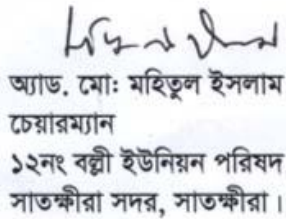 অ্যাড. মো: মহিতুল ইসলাম
চেয়ারম্যান
১২নং বল্লী ইউনিয়ন পরিষদ
সাতক্ষীরা সদর, সাতক্ষীরা।